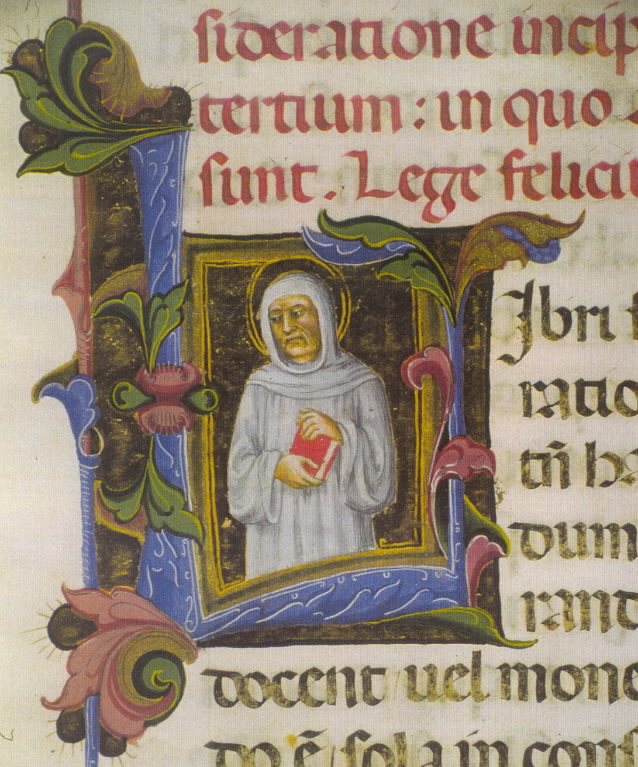 sideratione incip
tertium : in quo
sunt. Lege felicit
Ibri
ratio
tñ
dum
rant
docent uel mone
do ē sola in conf